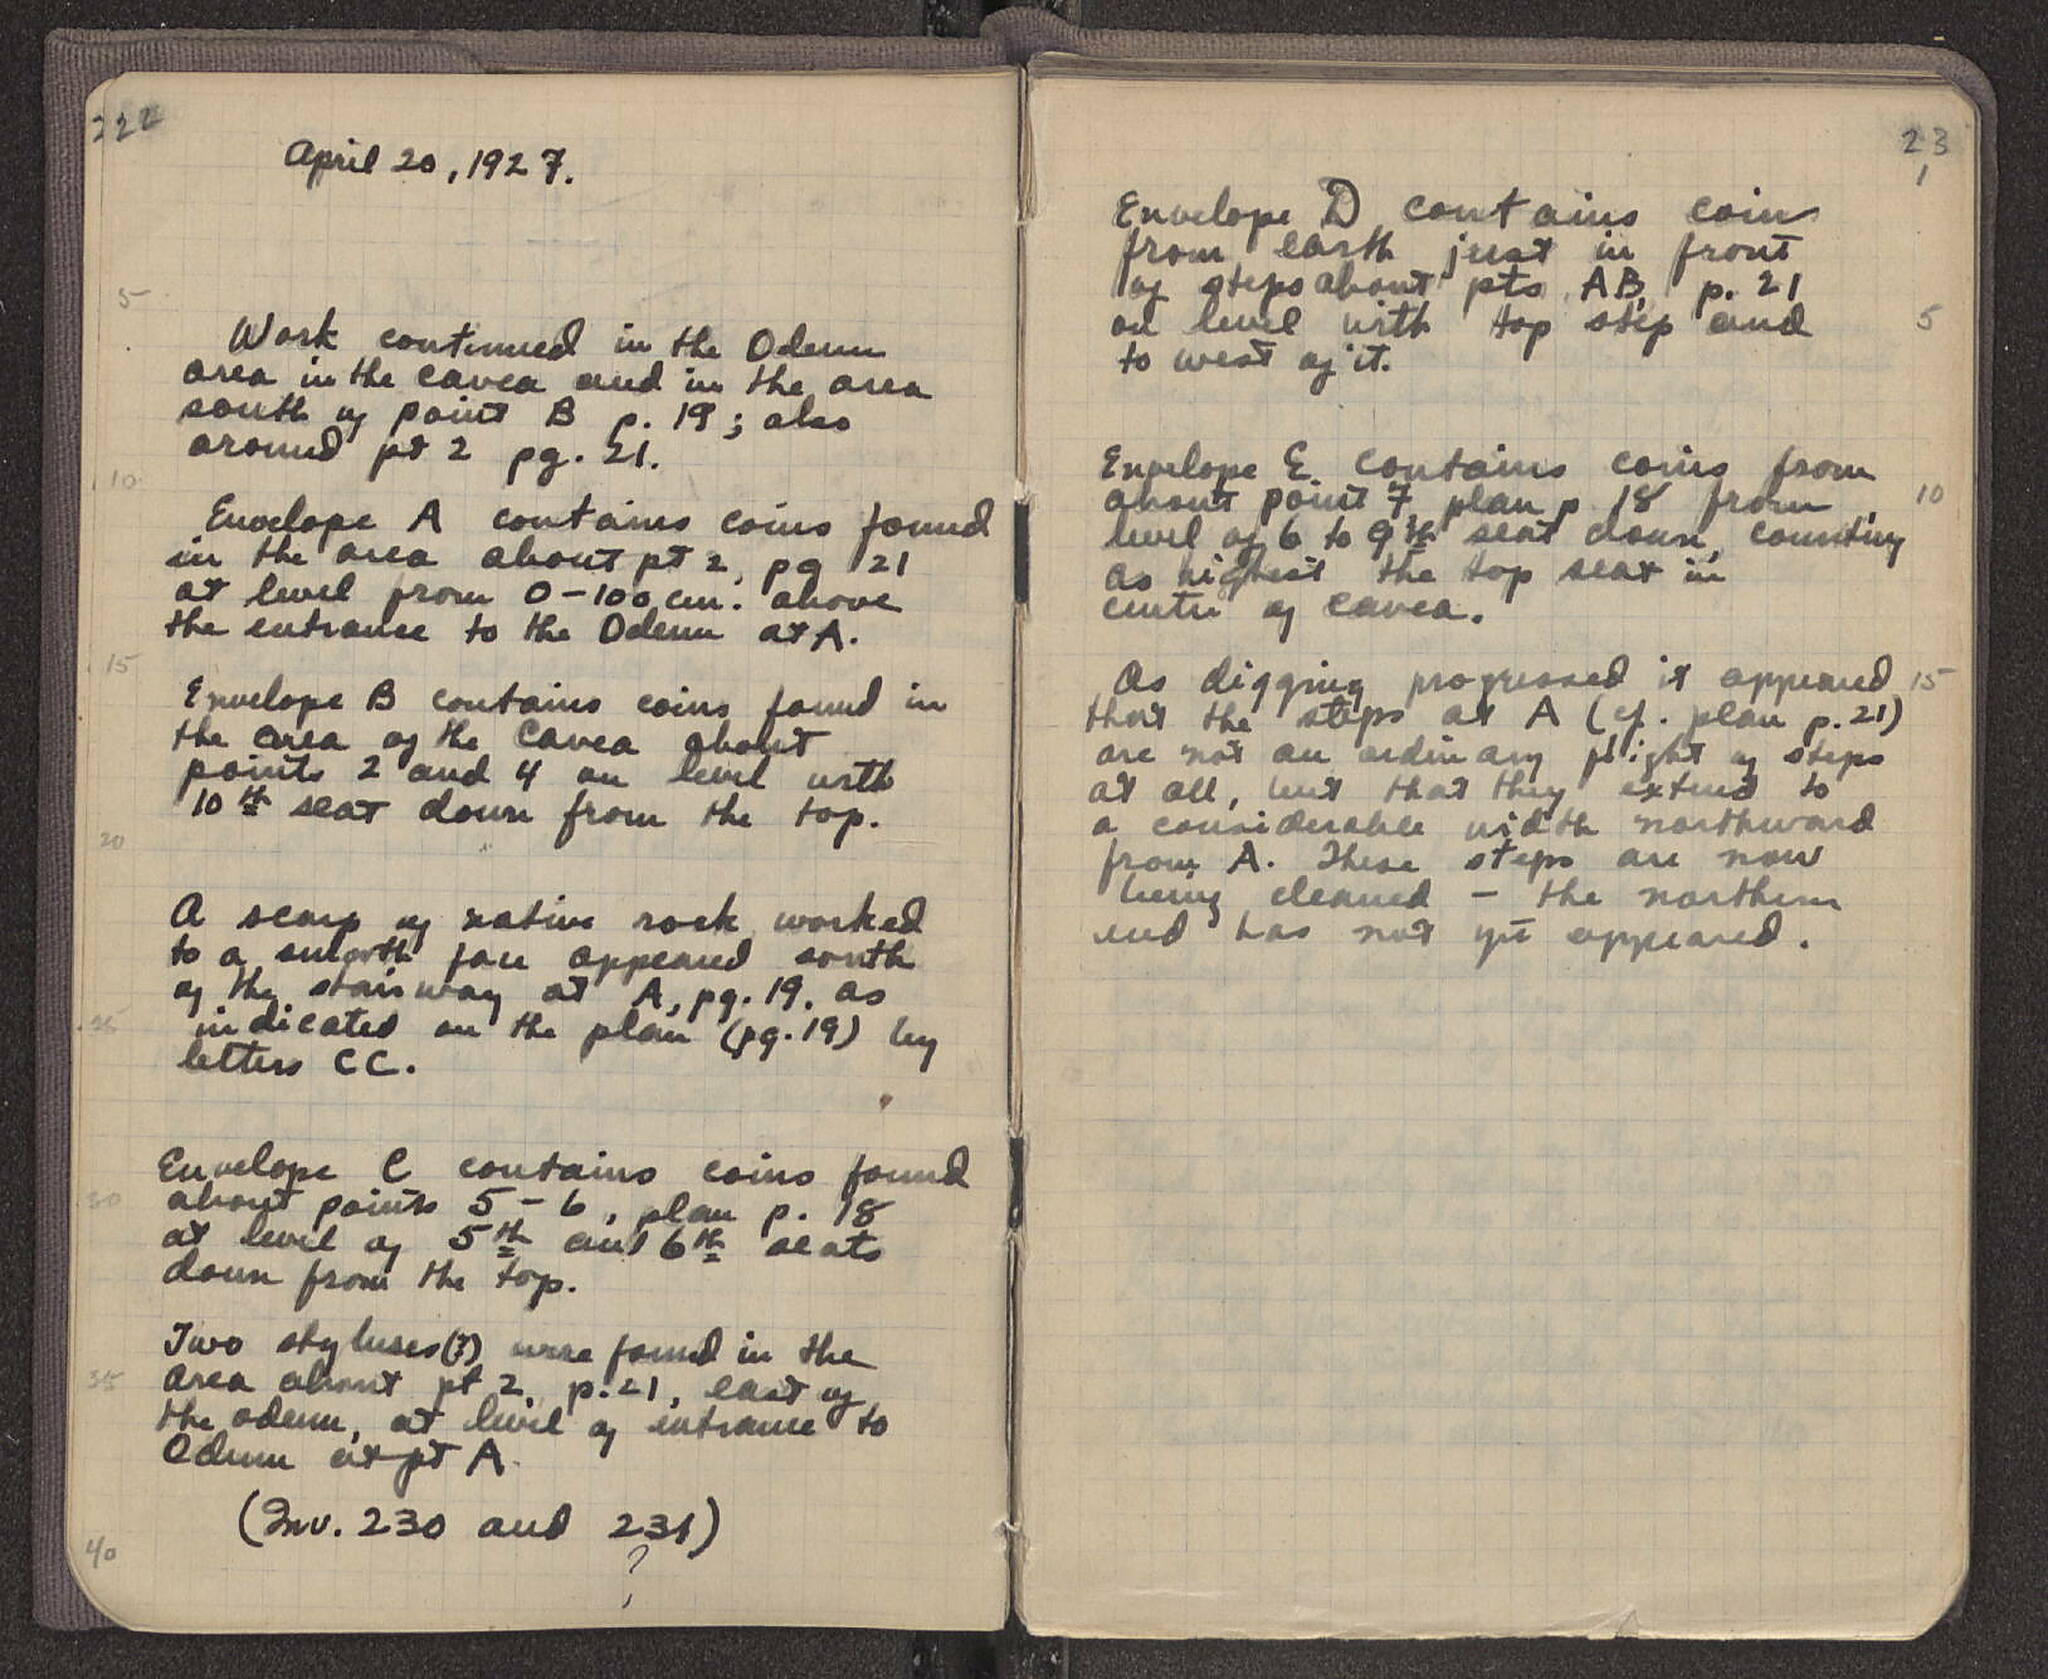 222
April 20, 1927.
5
Work continued in the Odeum
area in the cavea and in the area
south of point B p. 19; also
around pt 2 pg. 21.
10
Envelope A contains coins found
in the area about pt 2, pg 21
at level from 0-100 cm. above
the entrance to the Odeum at A.
15
Envelope B contains coins found in
the area of the Cavea about
points 2 and 4 on level with
10th seat down from the top.
20
A scarp of native rock worked
to a smooth face appeared south
of the stairway at A, pg. 19. as
25
indicated on the plan (pg. 19) by
letters CC.
Envelope C contains coins found
30
about points 5-6, plan p. 18
at level of 5th and 6th seats
down from the top.
Two styluses(?) were found in the
35
area about pt 2, p. 21, east of
the odeum, at level of entrance to
Odeum at pt A.
(Inv. 230 and 231)
?
40
23
1
Envelope D contains coins
from earth just in front
of steps about pts AB, p. 21
on level with top step and
5
to west of it.
Envelope E contains coins from
about point 7, plan p 18 from
10
level of 6 to 9th seat down, counting
as highest the top seat in
centre of cavea.
As digging progressed it appeared
15
that the steps at A (cf. plan p. 21)
are not an ordinary flight of steps
at all, but that they extend to
a considerable width northward
from A. These steps are now
being cleaned - the northern
end has not yet appeared.